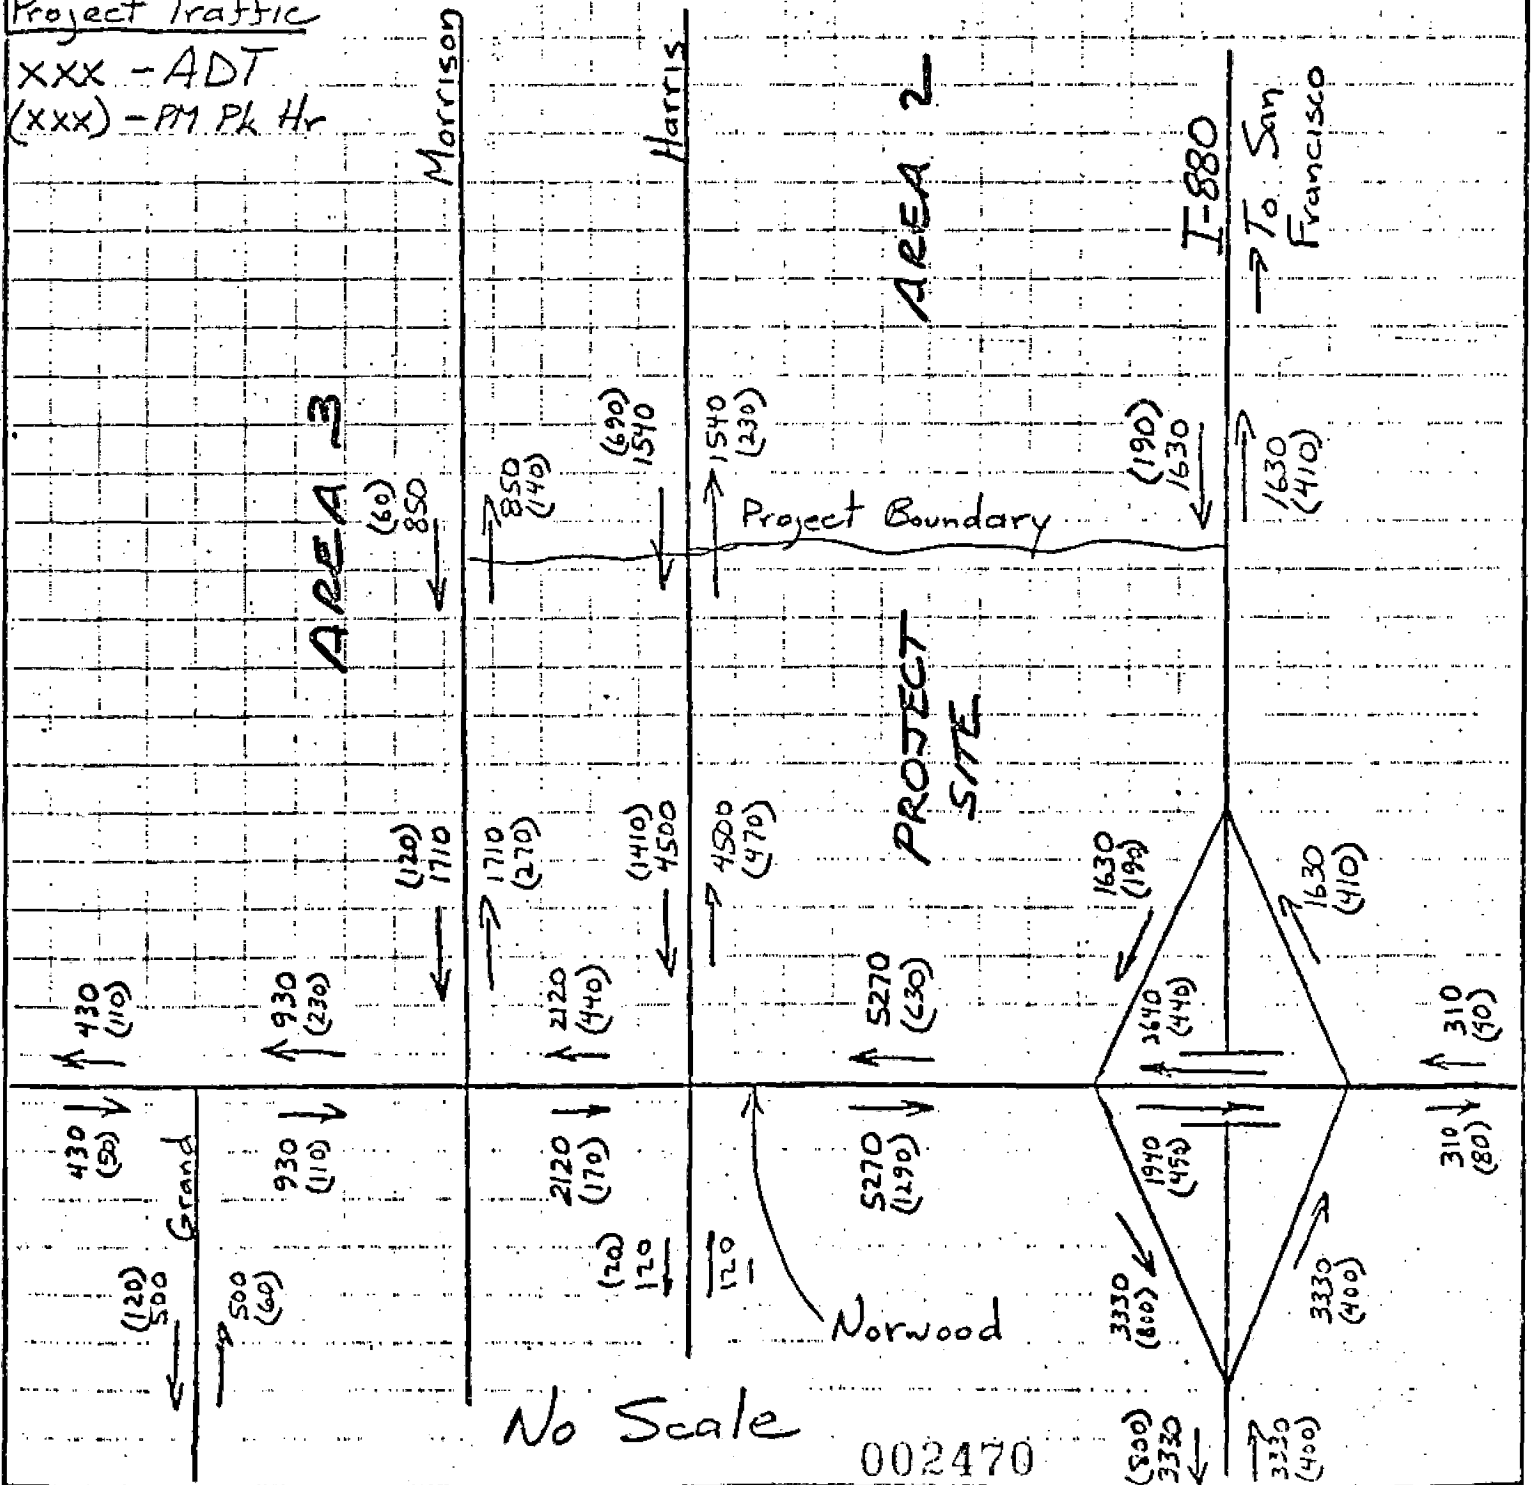 Project Traffic
xxx - ADT
(xxx) - PM Pk Hr
Morrison
Harris
AREA 2
I-880
To San
Francisco
AREA 3
(60)
850
850
(140)
(690)
1540
1540
(230)
(190)
1630
1630
(410)
Project Boundary
PROJECT
SITE
(120)
1710
1710
(270)
(140)
4500
4500
(470)
1630
(190)
1630
(410)
430
(110)
930
(230)
2120
(440)
5270
(630)
(440)
310
(90)
430
(50)
Grand
930
(110)
2120
(170)
5270
(1290)
1940
(490)
310
(80)
(120)
500
500
(60)
(20)
120
120
Norwood
3330
(800)
3330
(400)
No Scale
002470
(800)
3330
3330
(400)